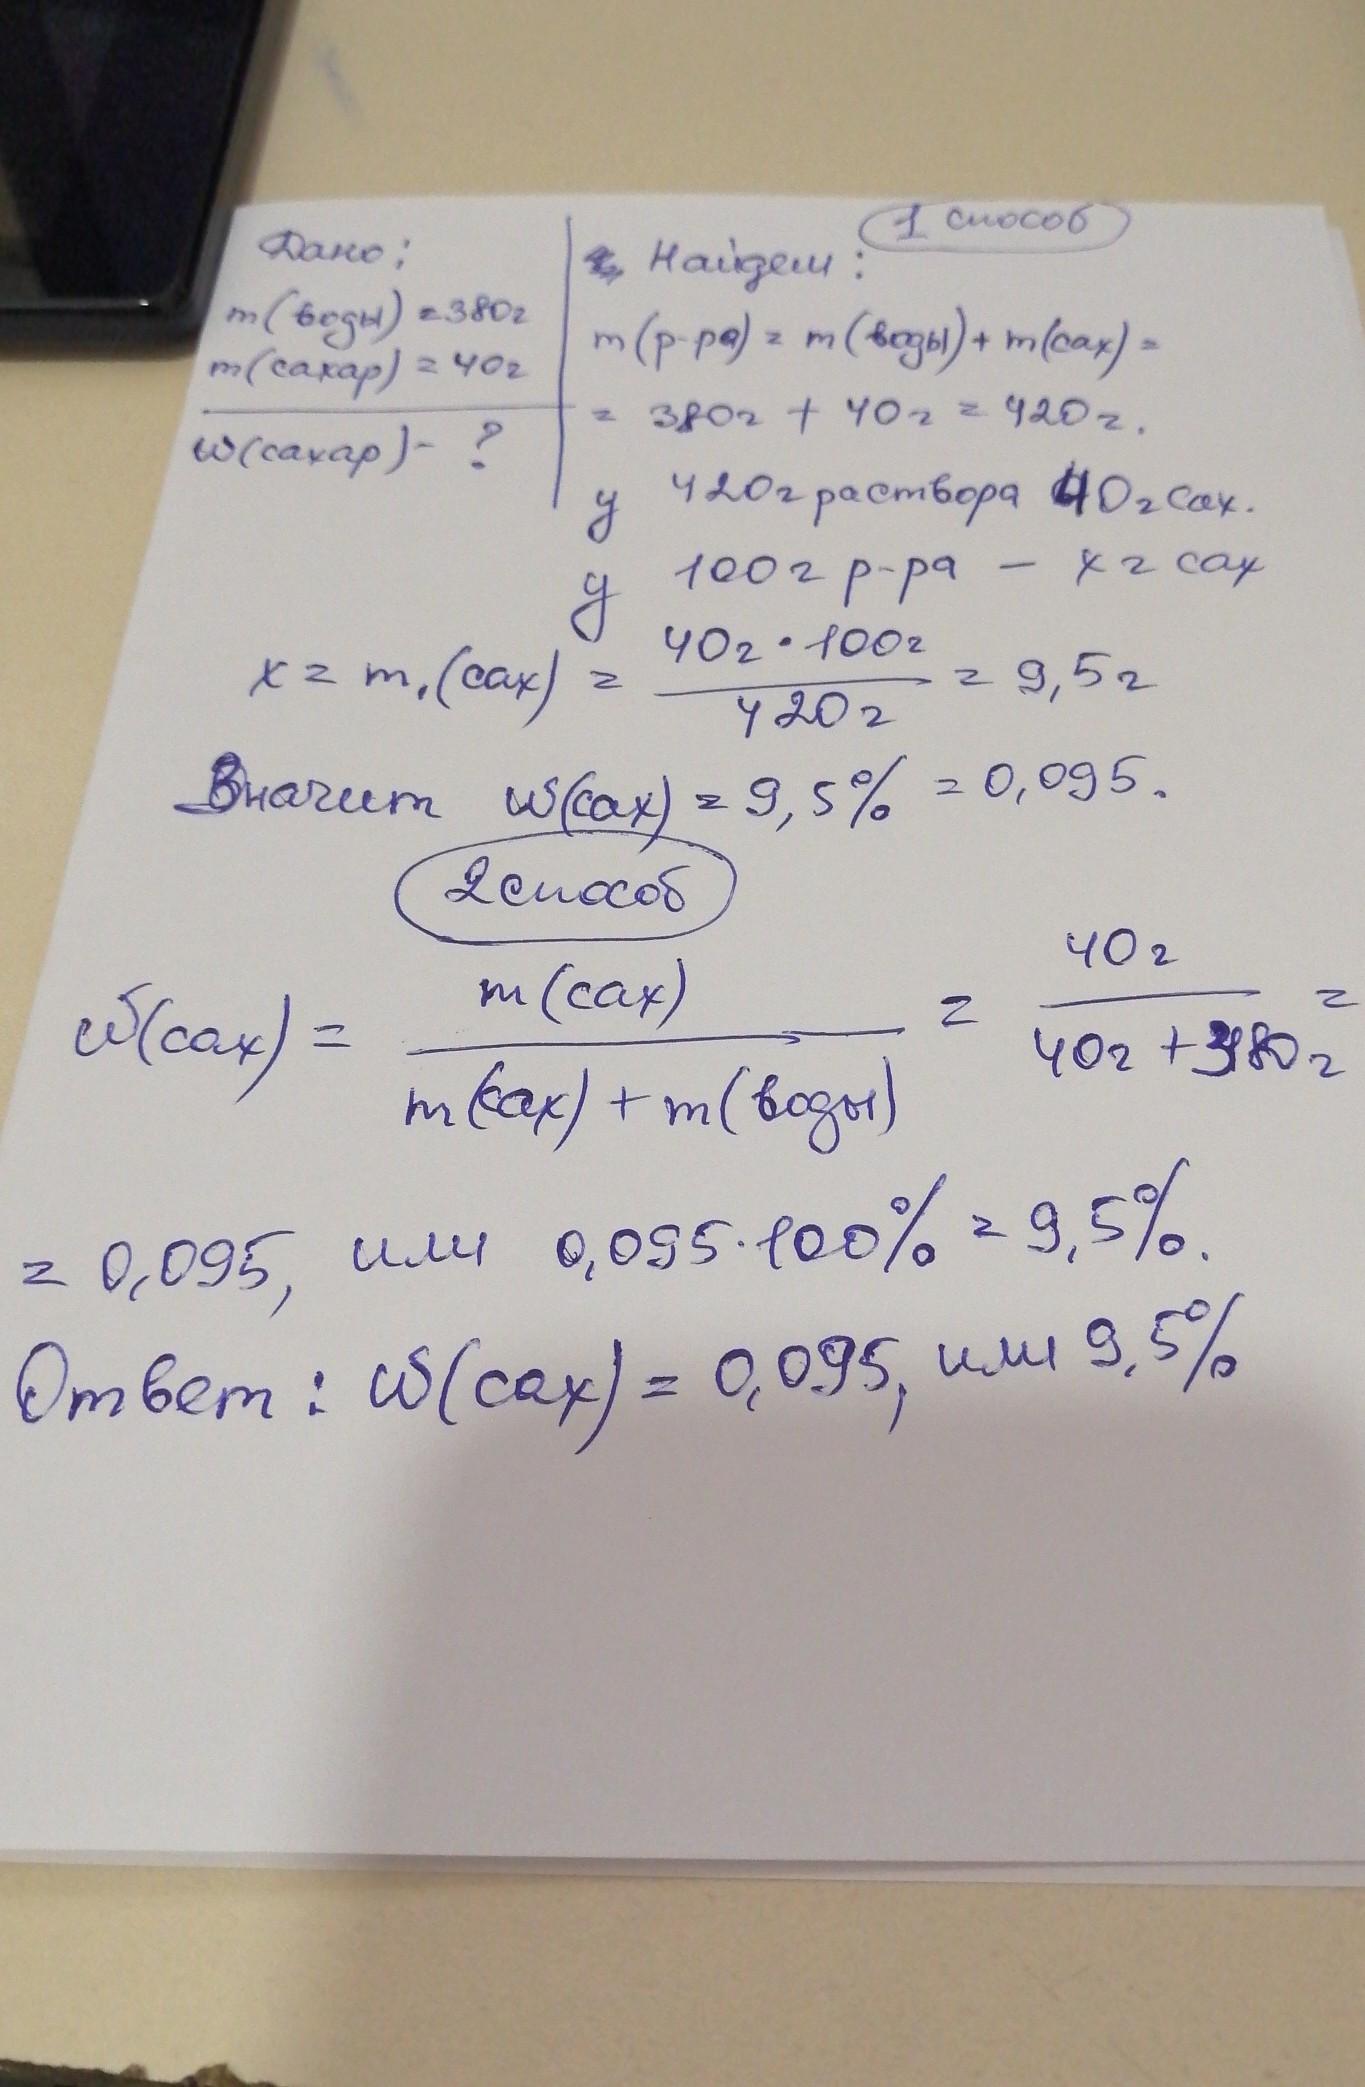 1 способ
Дано:
m(воды) = 380г
m(сахар) = 40г
w(сахар) - ?
Найдем:
m(р-ра) = m(воды) + m(сах) =
= 380г + 40г = 420г.
у 420г раствора 40г сах.
у 100г р-ра - x г сах
x = m₁(сах) = 40г · 100г / 420г = 9,5г
Значит w(сах) = 9,5% = 0,095.
2 способ
w(сах) = m(сах) / m(сах) + m(воды) = 40г / 40г + 380г =
= 0,095, или 0,095·100% = 9,5%.
Ответ: w(сах) = 0,095, или 9,5%